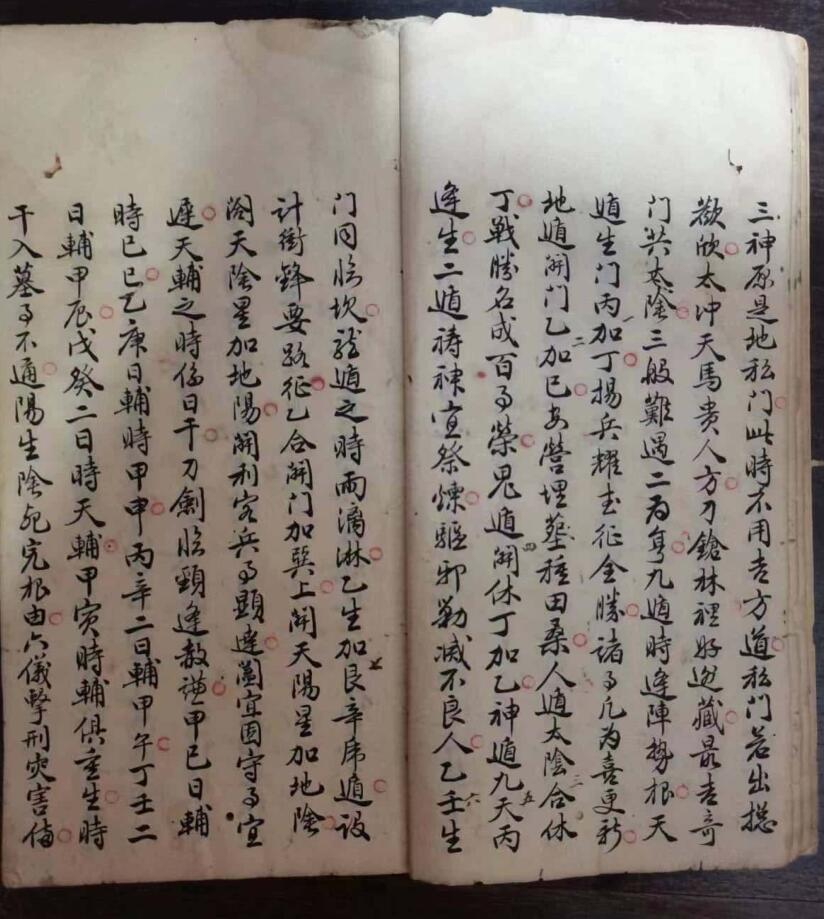 三神原是地私門此時不用吉方道私門若出揔
歡欣太冲天馬貴人方刀鎗林裡好迯藏最吉奇
门共太陰三般難遇二为身九遁時逢陣势根天
遁生门丙加丁揚兵耀武征全勝諸事凡为喜更新
地遁開门乙加己安營埋墓種田桑人遁太陰合休
丁戰勝名成百事榮鬼遁開休丁加乙神遁九天丙
逢生二遁祷神宜祭煉驅邪勦滅不良人乙壬生
门同臨坎龍遁之時雨漓淋乙生加艮辛虎遁設
計衝鋒要路征乙合開门加巽上開天陽星加地陰
闔天陰星加地陽開利客兵事顯達闔宜固守事宜
遲天輔之時係日干刀劍臨頸逢赦謹甲己日輔
時己巳乙庚日輔時甲申丙辛二日輔甲午丁壬二
日輔甲辰戊癸二日時天輔甲寅時輔俱重生時
干入墓事不通陽生陰死究根由六儀擊刑灾害俻
一
二
三
四
五
六
七